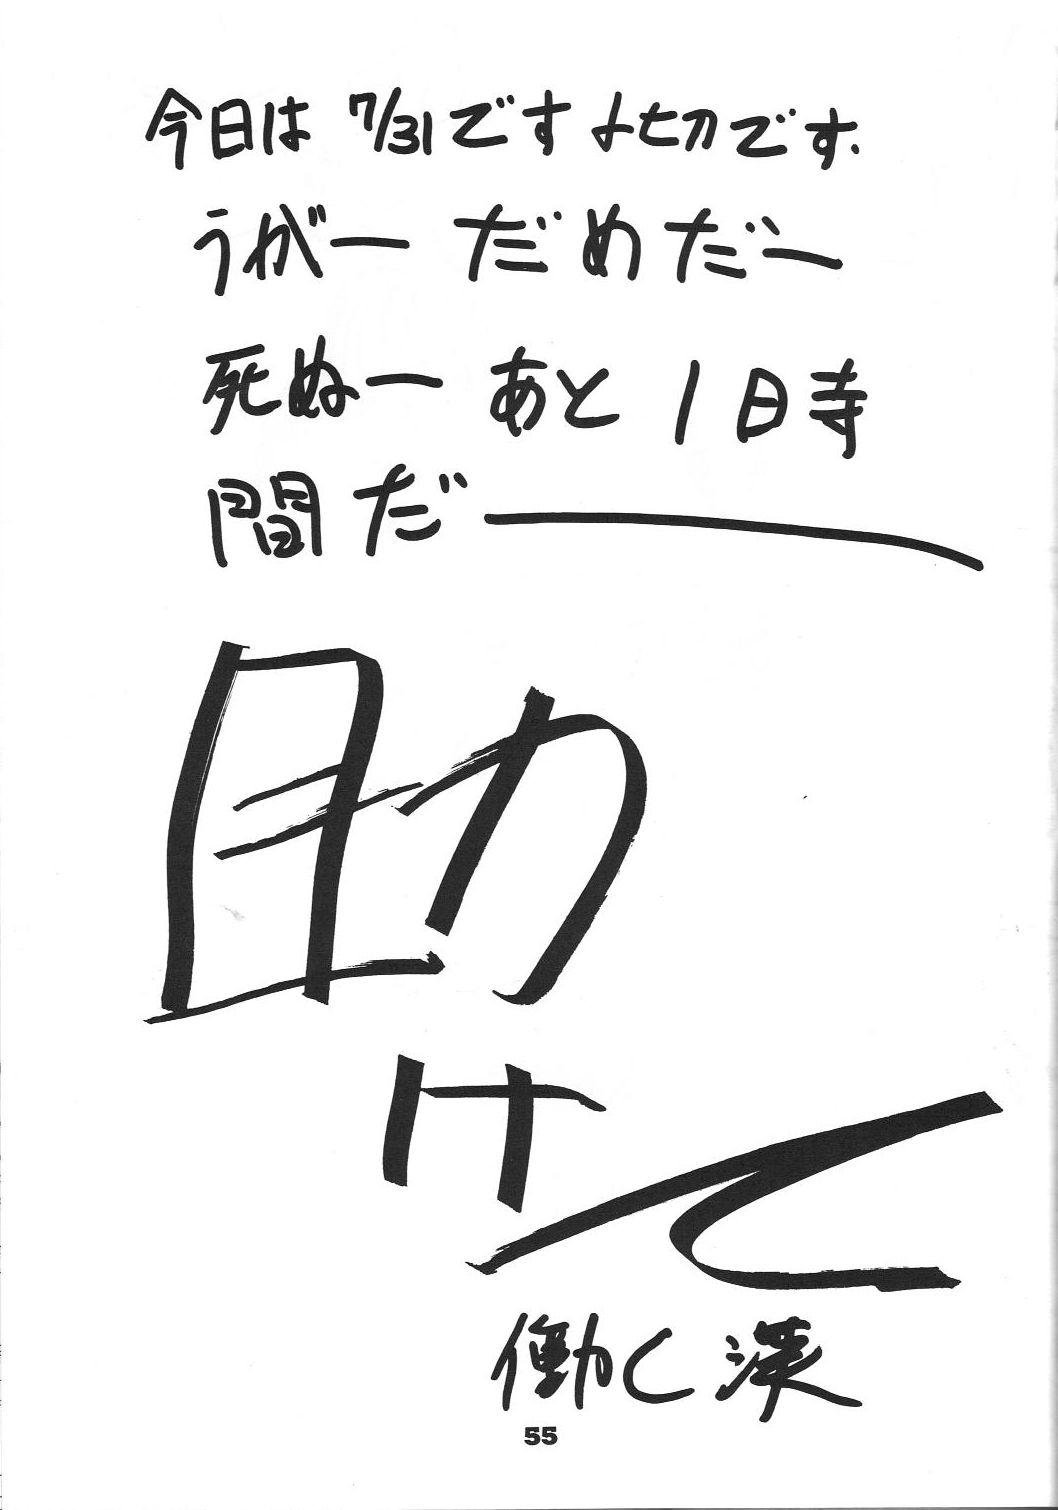 今日は 7/31です〆切です.
うがー だめだー
死ぬー あと 1時
間だー
助
けて
働く漢
55